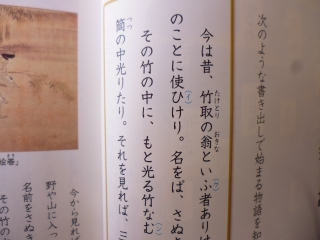 次のような書き出しで始まる物語を
たけとり おきな
今は昔、竹取の翁といふ者あり
のことに使ひけり。名をば、さぬ
その竹の中に、もと光る竹なむ
つつ
筒の中光りたり。それを見れば、三
今から見れ
野や山に入っ
名前をさぬ
その竹の